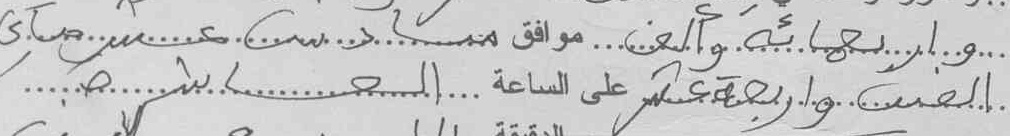 وأربعمائة وألف موافق سادس عشر ماي
ألفين وأربعة عشر على الساعة العاشرة ص